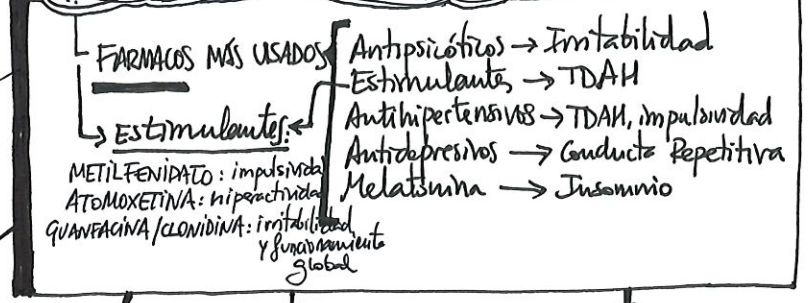 FARMACOS MÁS USADOS
Antipsicóticos → Irritabilidad
Estimulantes → TDAH
Antihipertensivos → TDAH, impulsividad
Antidepresivos → Conducta Repetitiva
Melatonina → Insomnio
Estimulantes:
METILFENIDATO: impulsividad
ATOMOXETINA: hiperactividad
GUANFACINA/CLONIDINA: irritabilidad
y funcionamiento
global